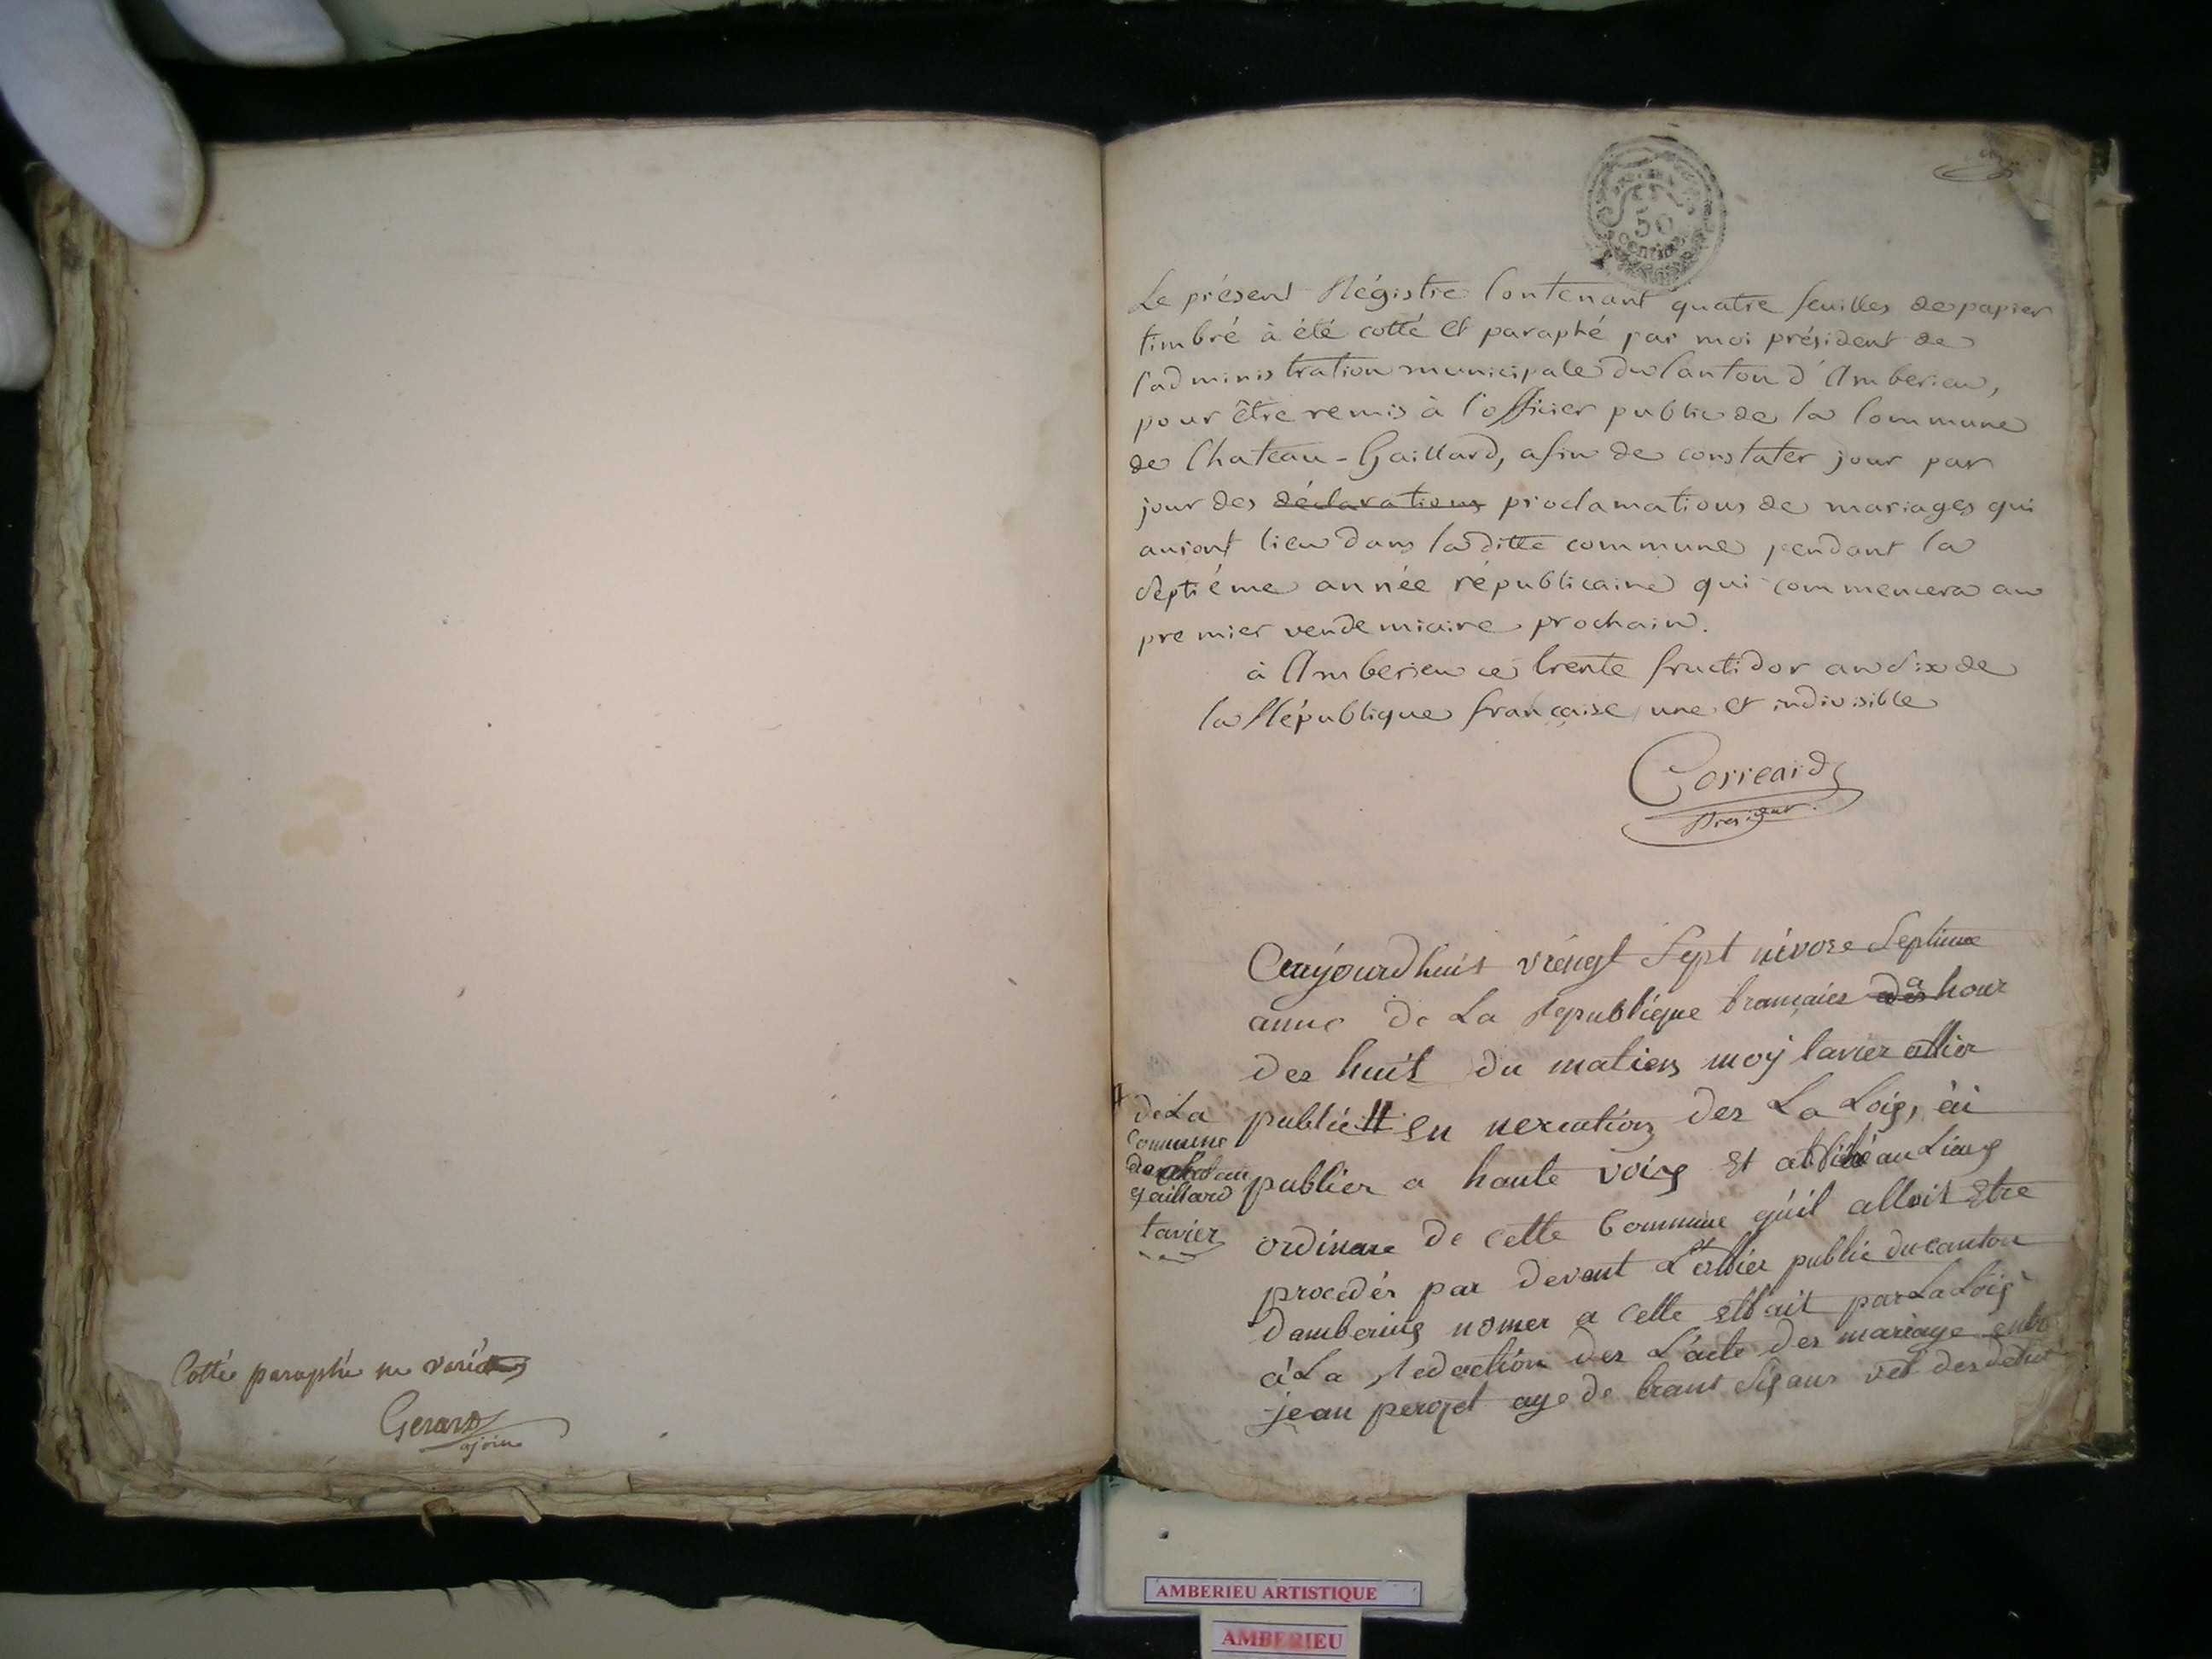 Cottée paraphé ne varié
Gerard
ajoin
50
centimes
Le présent Régistre Contenant quatre feuilles de papier
timbré à été cotté et paraphé par moi président de
l'administration municipale du Canton d'Amberieu,
pour être remis à l'officier public de la Commune
de Chateau-Gaillard, afin de constater jour par
jour des déclarations proclamations de mariages qui
auront lieu dans la ditte commune pendant la
septiéme année républicaine qui commencera au
premier vendemiaire prochain.
à Amberieu ce trente fructidor an six de
la République française une et indivisible
Correard
President.
Aujourdhuit viengt sept nivose septieme
anné de La Republique francaies a hour
des huit du matiens moy tavier
publié # en des La Loig, ai
# de La
Commune
de chateau
gaillard
tavier
publier a haute voig et au Lieug
ordinare de cette Commune qu'il alloit Etre
procedér par devent public du canton
Damberiug nomer a cette par La Loig
à La Redaction des L'acte des mariage entre
jean perozet age de trant sig ans
AMBERIEU ARTISTIQUE
AMBERIEU